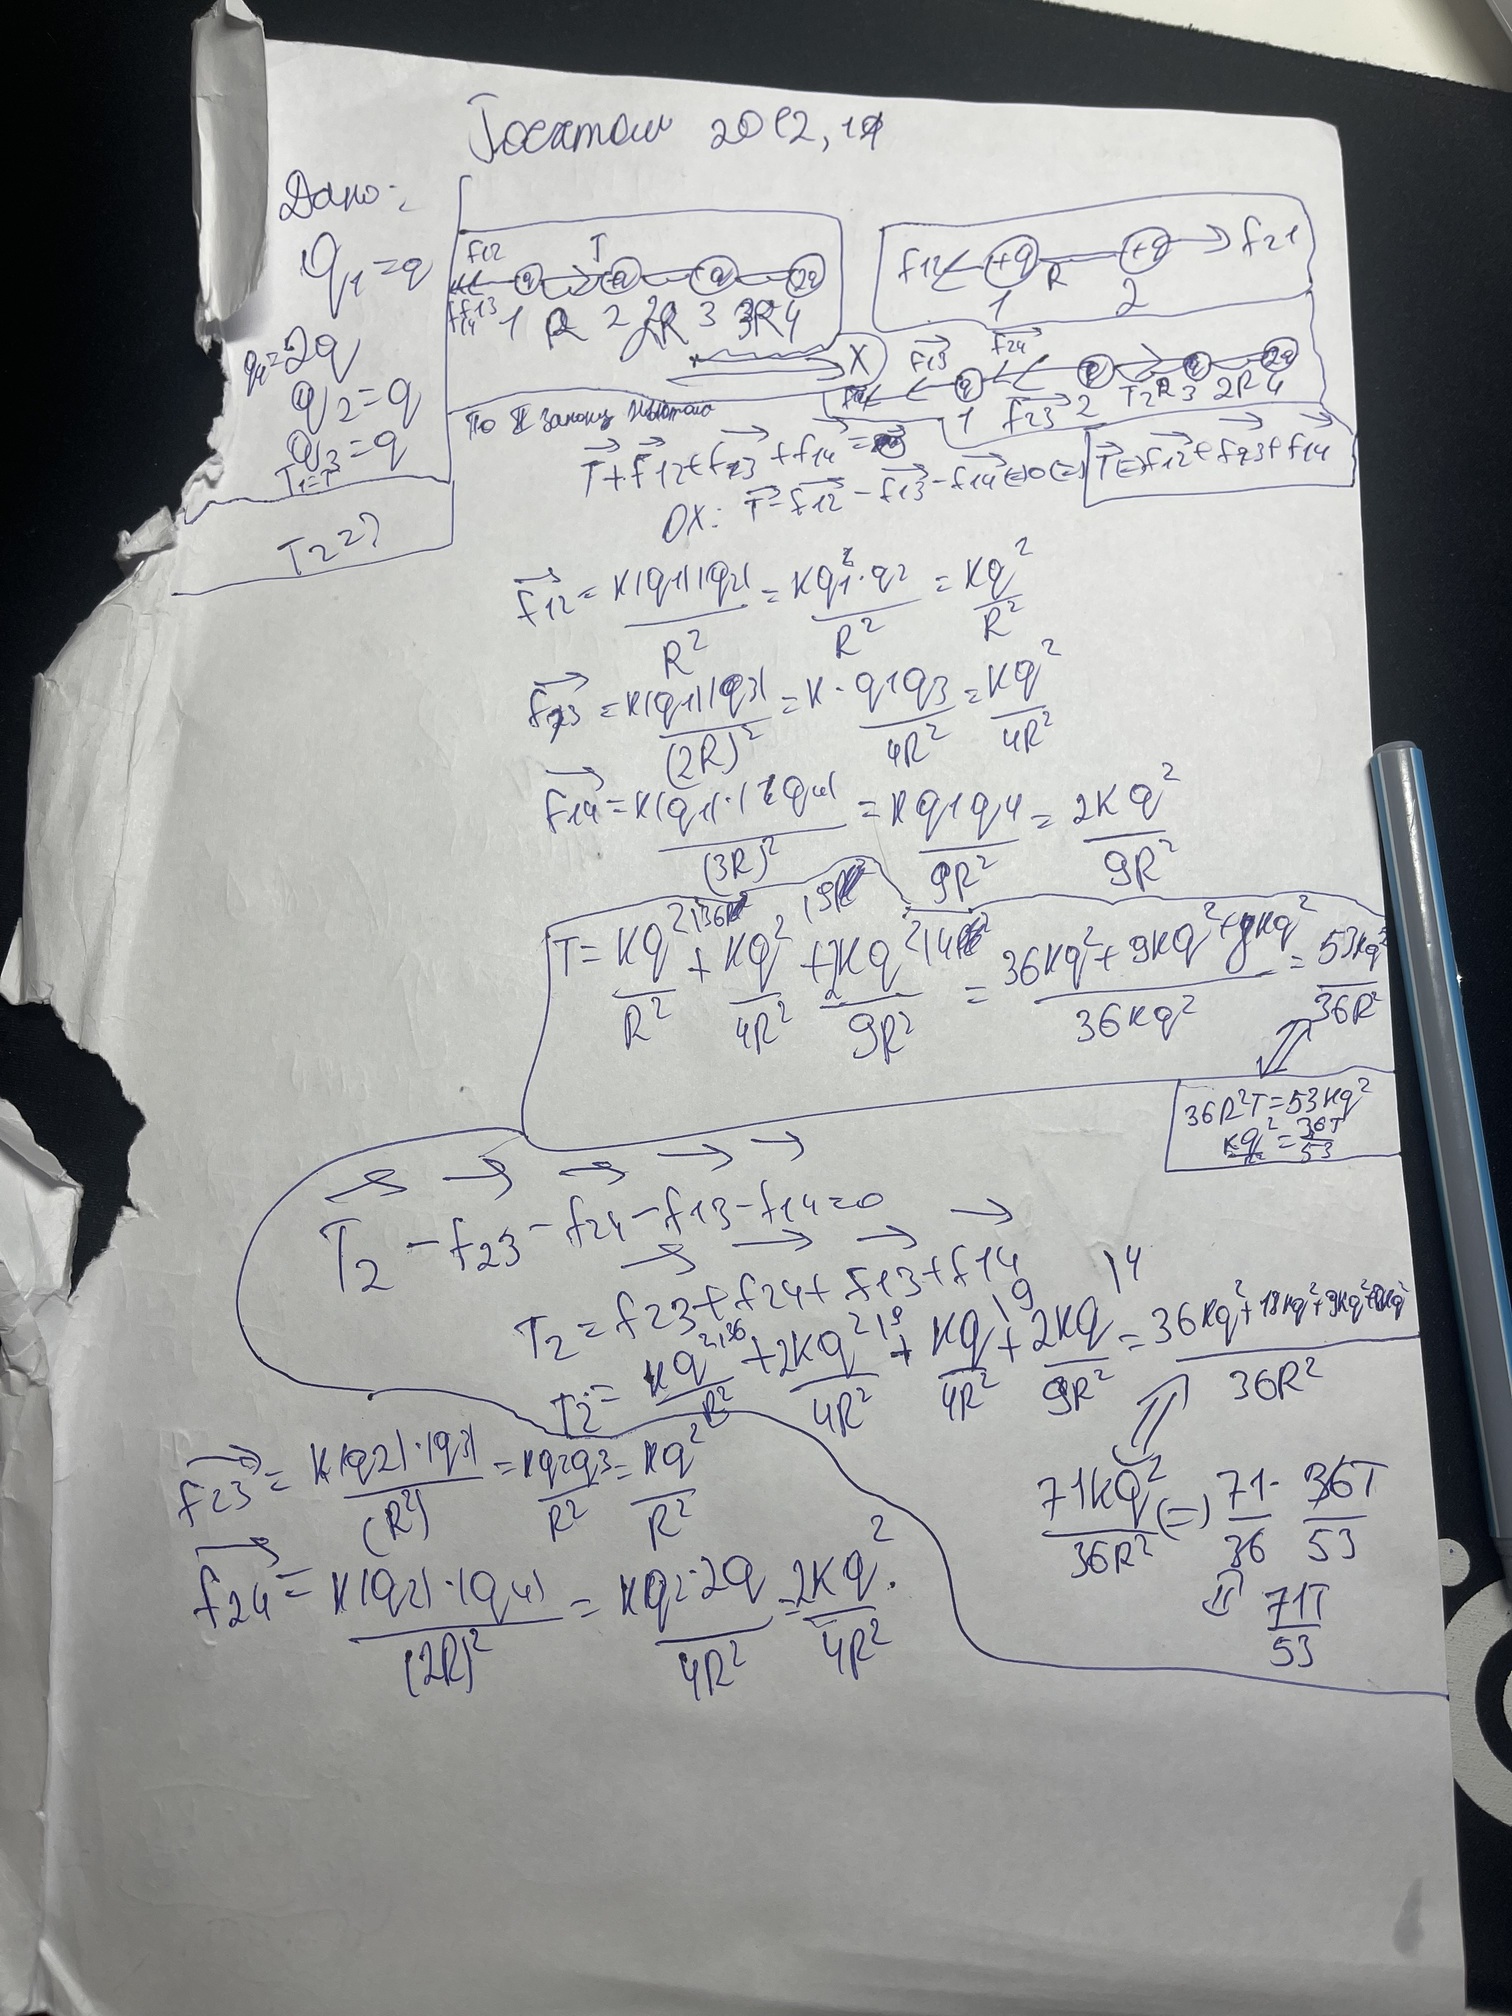 2012, 19
Дано:
q1 = q
q4 = 2q
q2 = q
q3 = q
T1 = T
T2 = ?
f12 T
f13
f14 1 R 2 2R 3 3R 4
q q q 2q
f12 +q R +q f21
1 2
X f13 f24
f14 q q q 2q
1 f23 2 T2 R 3 2R 4
По II закону Ньютона
T + f12 + f13 + f14 = 0
OX: T - f12 - f13 - f14 = 0 (=) T = f12 + f13 + f14
f12 = K|q1||q2| / R² = Kq1·q2 / R² = Kq² / R²
f13 = K|q1||q3| / (2R)² = K·q1q3 / 4R² = Kq² / 4R²
f14 = K|q1|·|q4| / (3R)² = Kq1q4 / 9R² = 2Kq² / 9R²
T = Kq² |36 / R² + Kq² |9 / 4R² + 2Kq² |4 / 9R² = 36Kq² + 9Kq² + 8Kq² / 36Kq² = 53Kq² / 36R²
36R²T = 53Kq²
Kq² / R² = 36T / 53
T2 - f23 - f24 - f13 - f14 = 0
T2 = f23 + f24 + f13 + f14
T2 = Kq² |36 / R² + 2Kq² |9 / 4R² + Kq |9 / 4R² + 2Kq |4 / 9R² = 36Kq² + 18Kq² + 9Kq² + 8Kq² / 36R²
f23 = K|q2|·|q3| / (R²) = Kq2q3 / R² = Kq² / R²
71Kq² / 36R² (=) 71 / 36 · 36T / 53
f24 = K|q2|·|q4| / (2R)² = Kq2·2q / 4R² = 2Kq² / 4R².
71T / 53